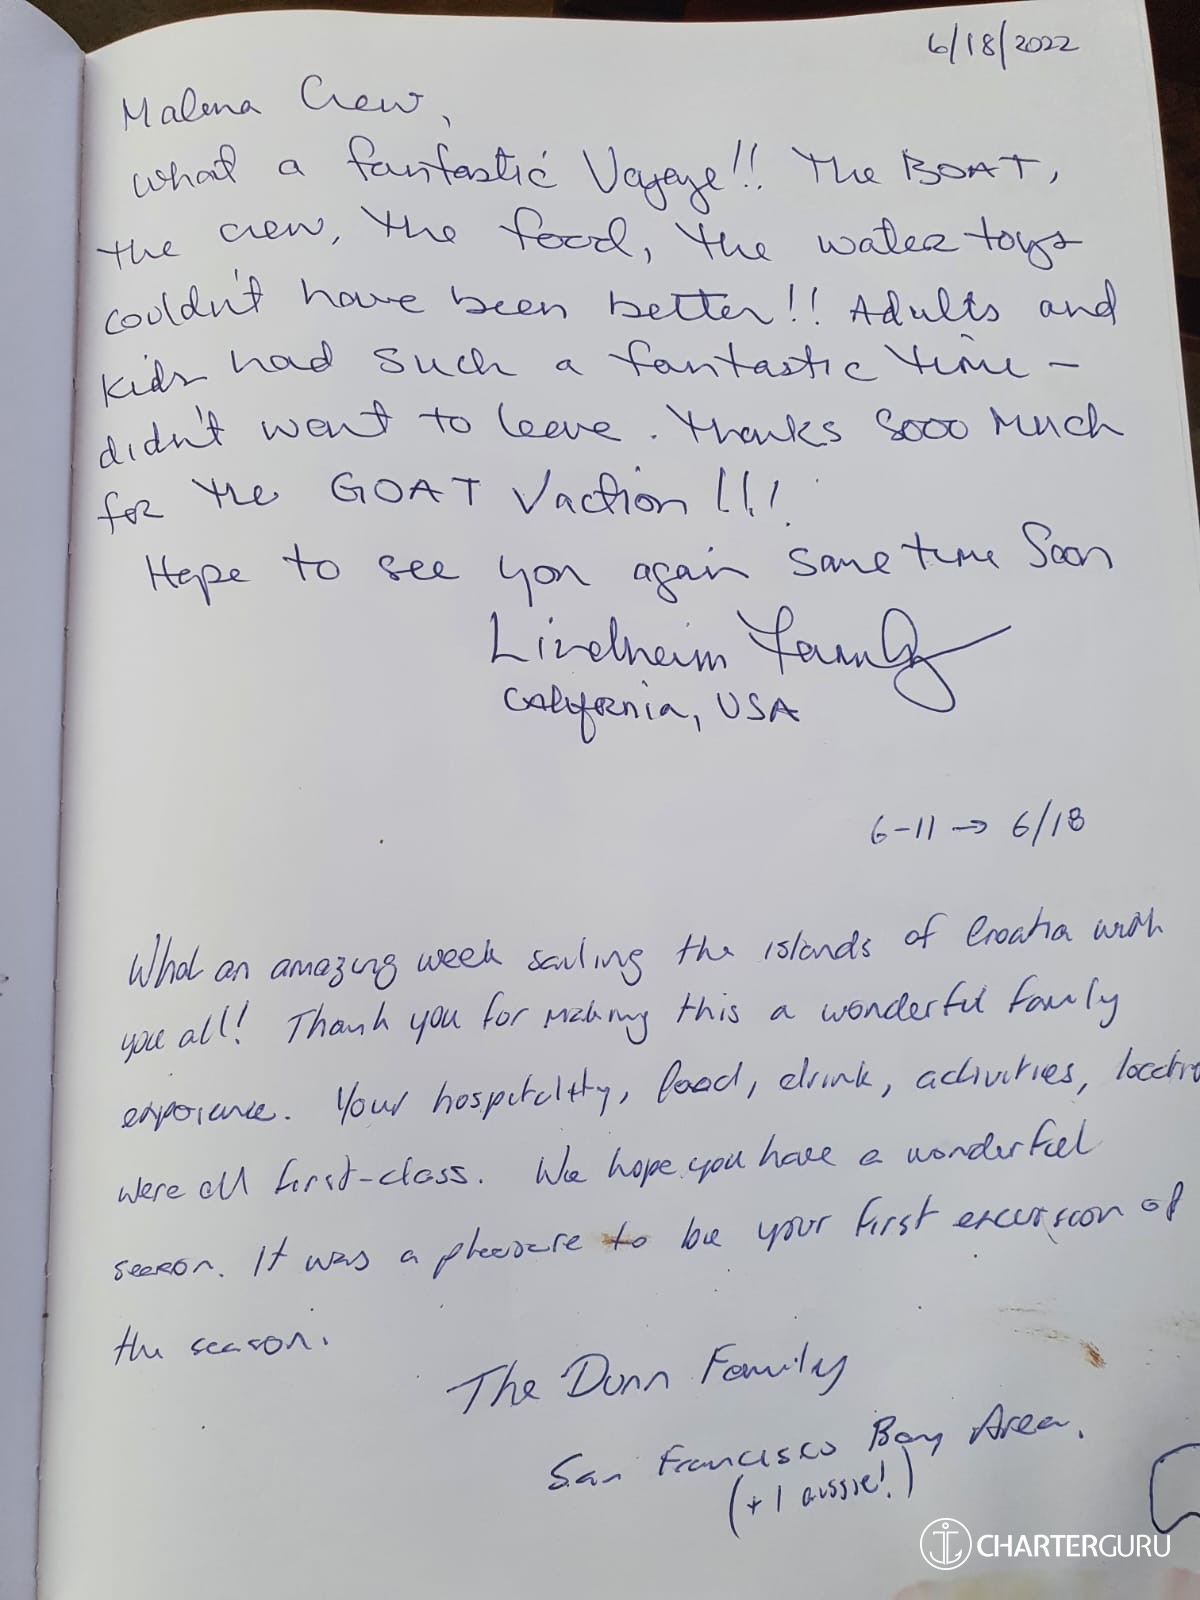 6/18/2022
Malena Crew,
What a fantastic Voyage!! The BOAT,
the crew, the food, the water toys
couldn't have been better!! Adults and
kids had such a fantastic time -
didn't want to leave. Thanks sooo Much
for the GOAT Vaction!!!
Hope to see you again sometime Soon
Lindheim Family
California, USA
6-11 → 6/18
What an amazing week sailing the islands of Croatia with
you all! Thank you for making this a wonderful family
experience. Your hospitality, food, drink, activities,
were all first-class. We hope you have a wonderful
season. It was a pleasure to be your first excursion of
the season.
The Dunn Family
San Francisco Bay Area.
(+1 aussie!)
CHARTERGURU